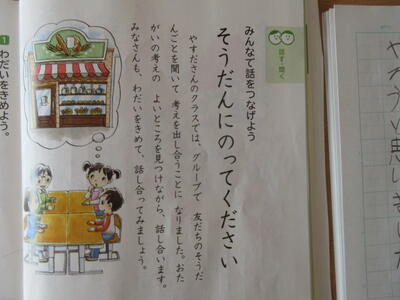 話す・聞く
みんなで話をつなげよう
そうだんにのってください
やすださんのクラスでは、グループで 友だちのそうだ
んごとを聞いて 考えを出し合うことに なりました。おた
がいの考えの よいところを見つけながら、話し合います。
みなさんも、わだいをきめて、話し合ってみましょう。
1
わだいをきめよう。